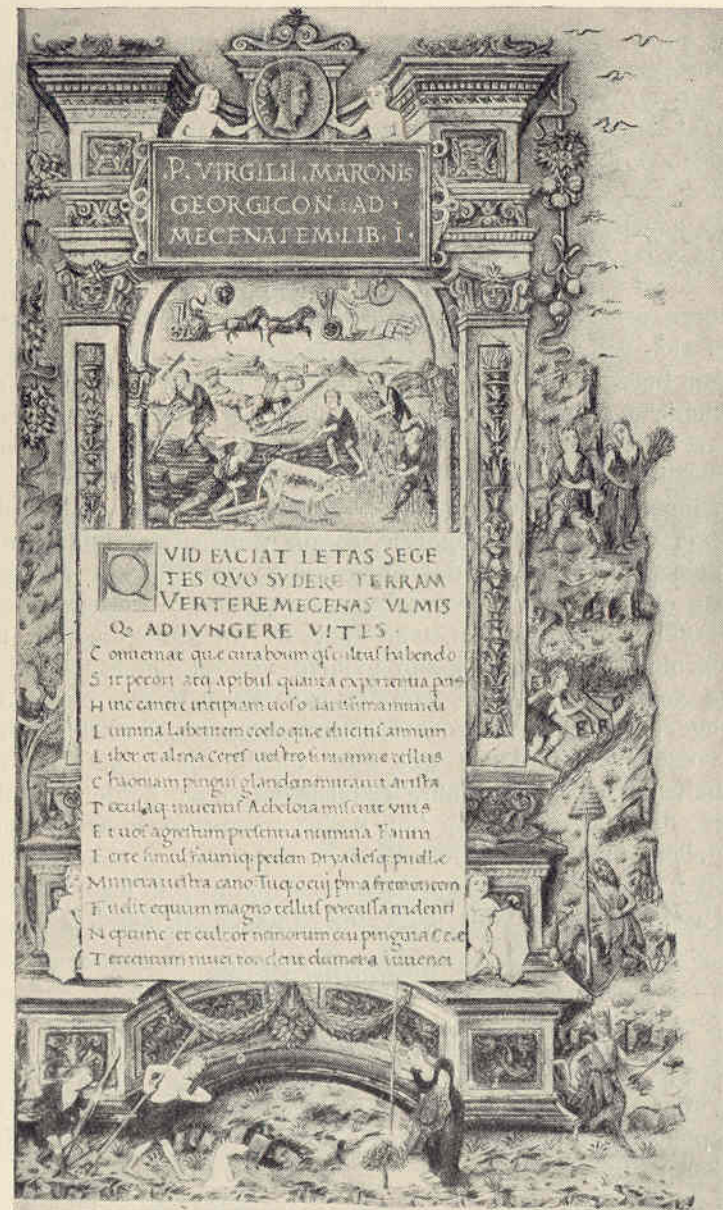 .P. VIRGILII .MARONIS
GEORGICON : AD .
MECENATEM . LIB . I .
QVID FACIAT LETAS SEGE
TES QVO SYDERE TERRAM
VERTERE MECENAS VLMIS
Q; AD IVNGERE VITES .
Conueniat que cura boum qs cultus habendo
Sit pecori atq apibus quanta experientia
Hinc canere incipiam uos o clarissima mundi
Lumina Labentem coelo quæ ducitis annum
Liber et alma Ceres uestro si munere tellus
Chaoniam pingui glandem mutauit arista
Poculaq inuentis Acheloia miscuit uuis
Et uos agrestum presentia numina Fauni
Ferte simul fauniq; pedem Dryadesq; puellæ
Munera uestra cano Tuq o cui pma frementem
Fudit equum magno tellus percussa tridenti
Neptune et cultor nemorum cui pinguia Ceæ
Tercentum niuei tondent dumeta iuuenci